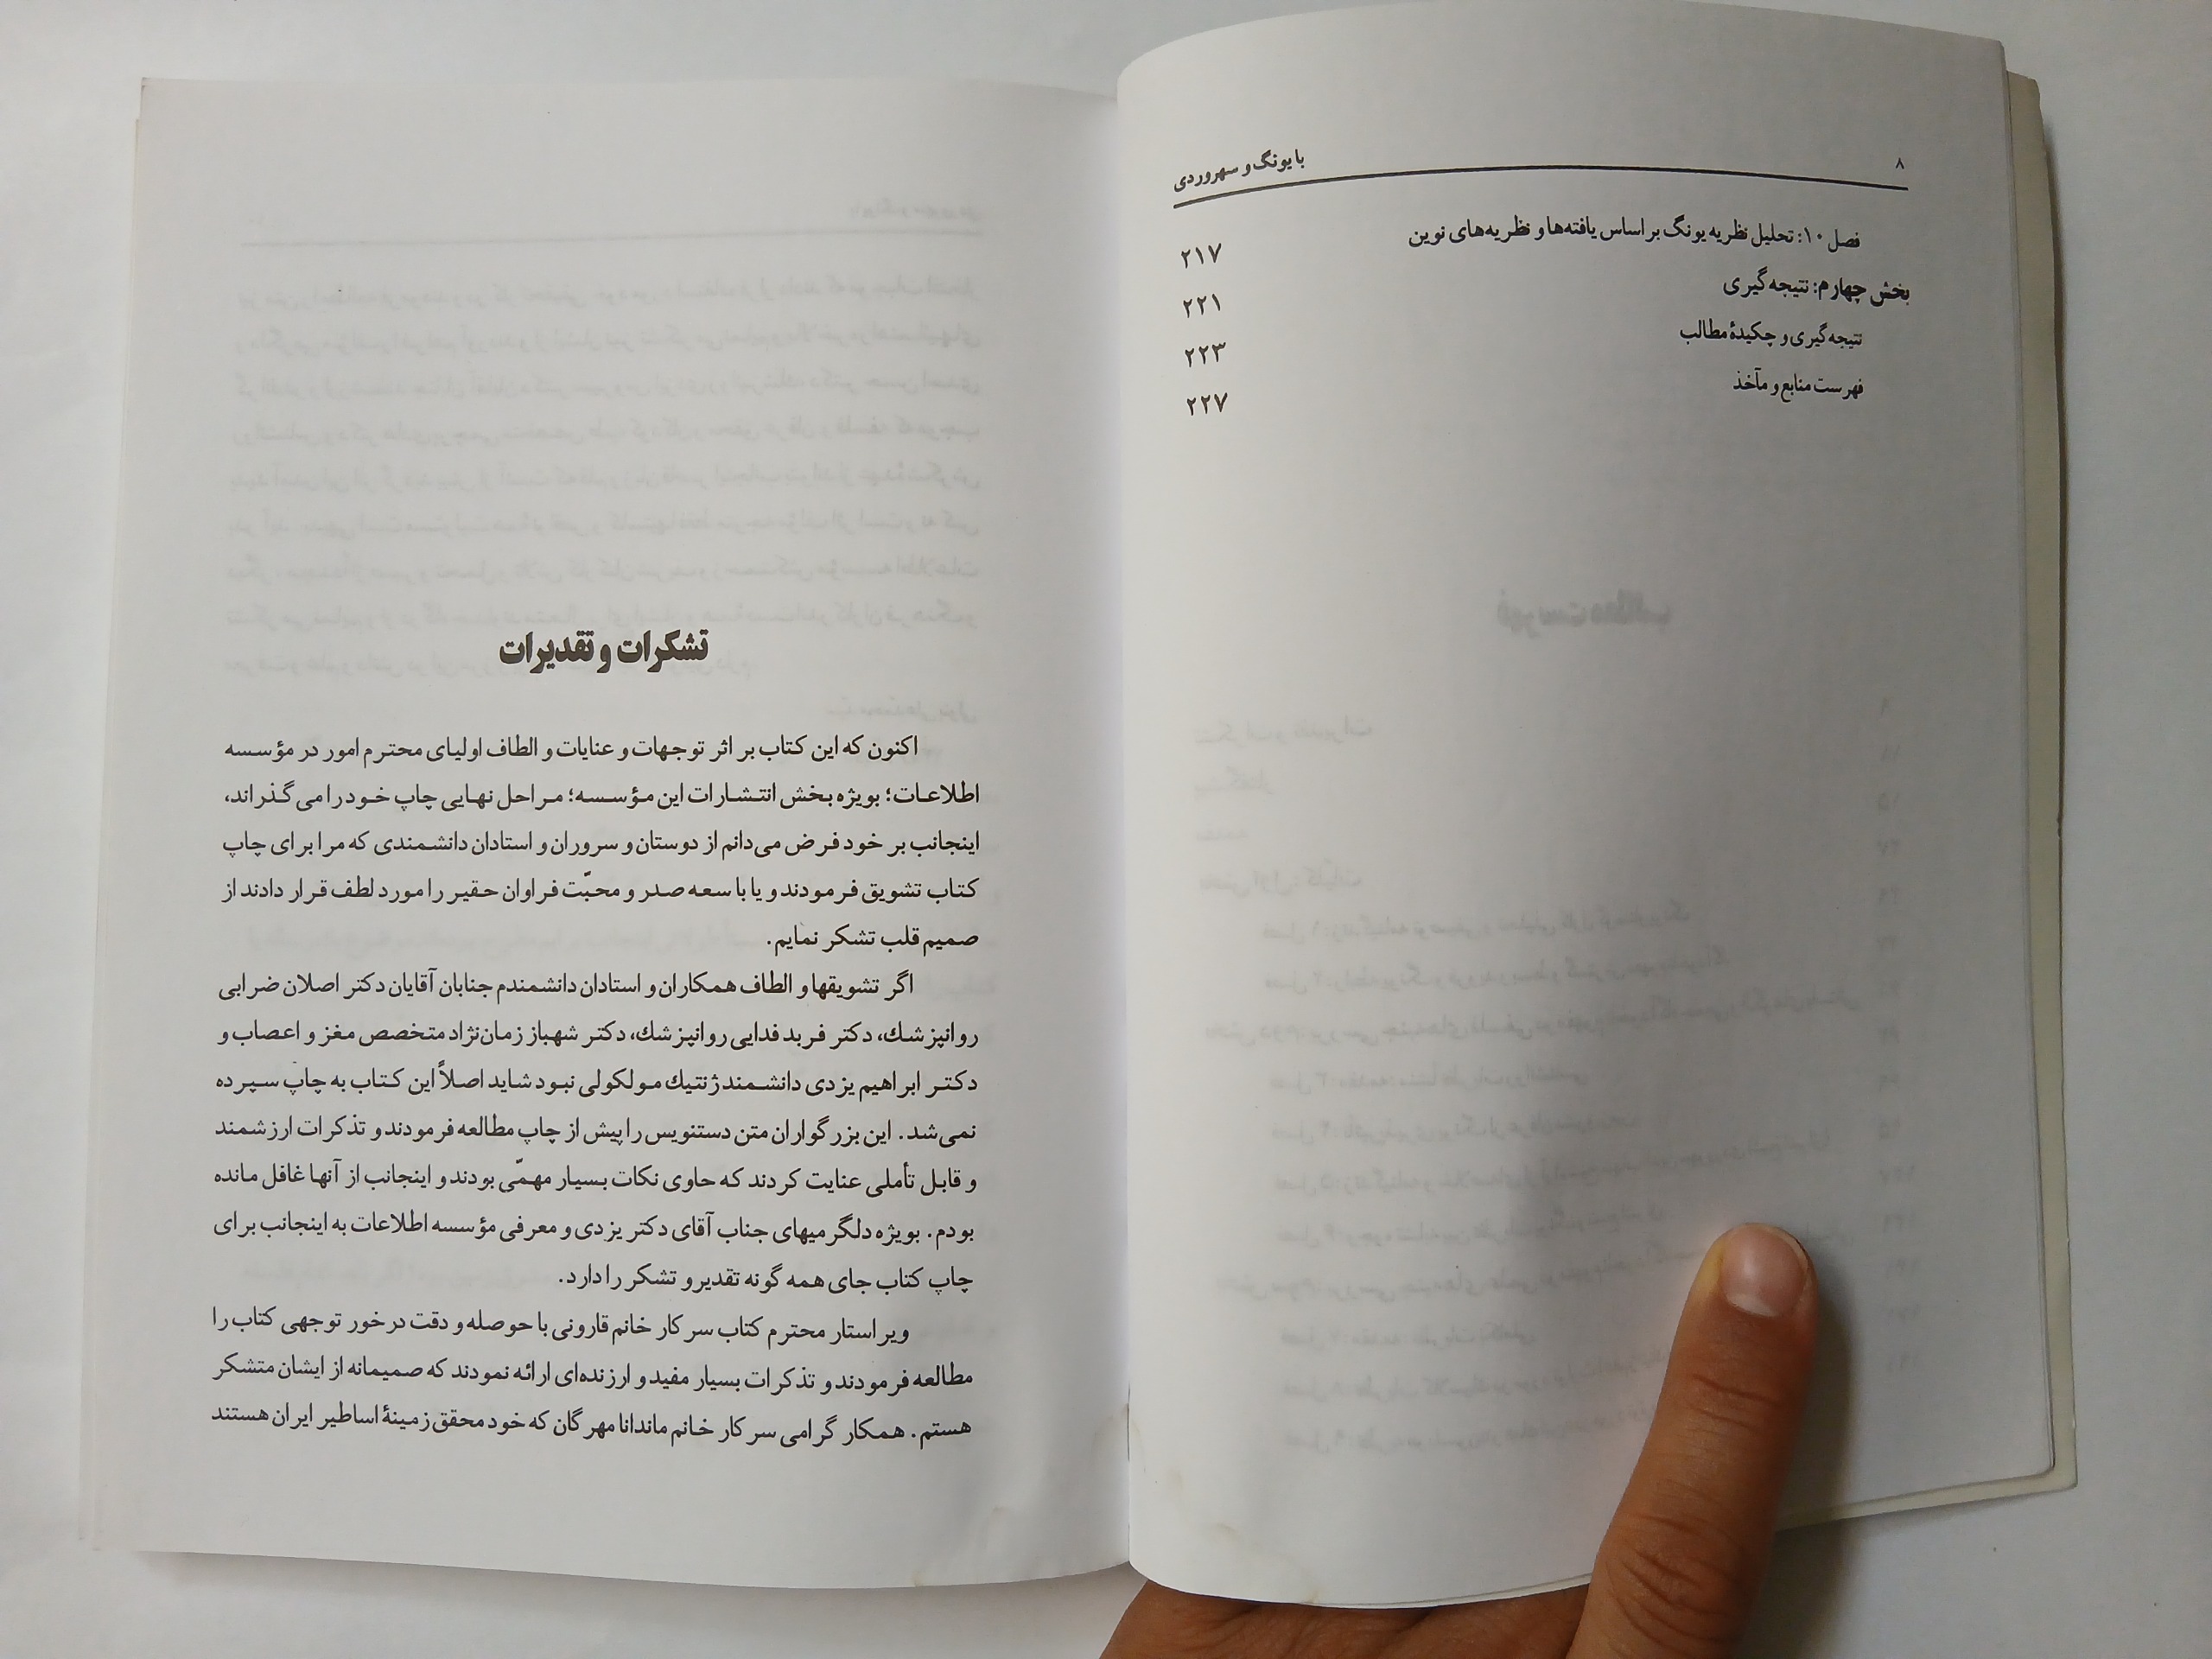 ۸
با یونگ و سهروردی
فصل ۱۰: تحلیل نظریه یونگ بر اساس یافته‌ها و نظریه‌های نوین ۲۱۷
بخش چهارم: نتیجه‌گیری ۲۲۱
نتیجه‌گیری و چکیدهٔ مطالب ۲۲۳
فهرست منابع و مآخذ ۲۲۷
تشکرات و تقدیرات
اکنون که این کتاب بر اثر توجهات و عنایات و الطاف اولیای محترم امور در مؤسسه
اطلاعات؛ بویژه بخش انتشارات این مؤسسه؛ مراحل نهایی چاپ خود را می‌گذراند،
اینجانب بر خود فرض می‌دانم از دوستان و سروران و استادان دانشمندی که مرا برای چاپ
کتاب تشویق فرمودند و یا با سعه صدر و محبّت فراوان حقیر را مورد لطف قرار دادند از
صمیم قلب تشکر نمایم.
اگر تشویقها و الطاف همکاران و استادان دانشمندم جنابان آقایان دکتر اصلان ضرابی
روانپزشك، دکتر فربد فدایی روانپزشك، دکتر شهباز زمان‌نژاد متخصص مغز و اعصاب و
دکتر ابراهیم یزدی دانشمند ژنتیك مولکولی نبود شاید اصلاً این کتاب به چاپ سپرده
نمی‌شد. این بزرگواران متن دستنویس را پیش از چاپ مطالعه فرمودند و تذکرات ارزشمند
و قابل تأملی عنایت کردند که حاوی نکات بسیار مهمّی بودند و اینجانب از آنها غافل مانده
بودم. بویژه دلگرمیهای جناب آقای دکتر یزدی و معرفی مؤسسه اطلاعات به اینجانب برای
چاپ کتاب جای همه گونه تقدیر و تشکر را دارد.
ویراستار محترم کتاب سرکار خانم قارونی با حوصله و دقت درخور توجهی کتاب را
مطالعه فرمودند و تذکرات بسیار مفید و ارزنده‌ای ارائه نمودند که صمیمانه از ایشان متشکر
هستم. همکار گرامی سرکار خانم ماندانا مهرگان که خود محقق زمینهٔ اساطیر ایران هستند